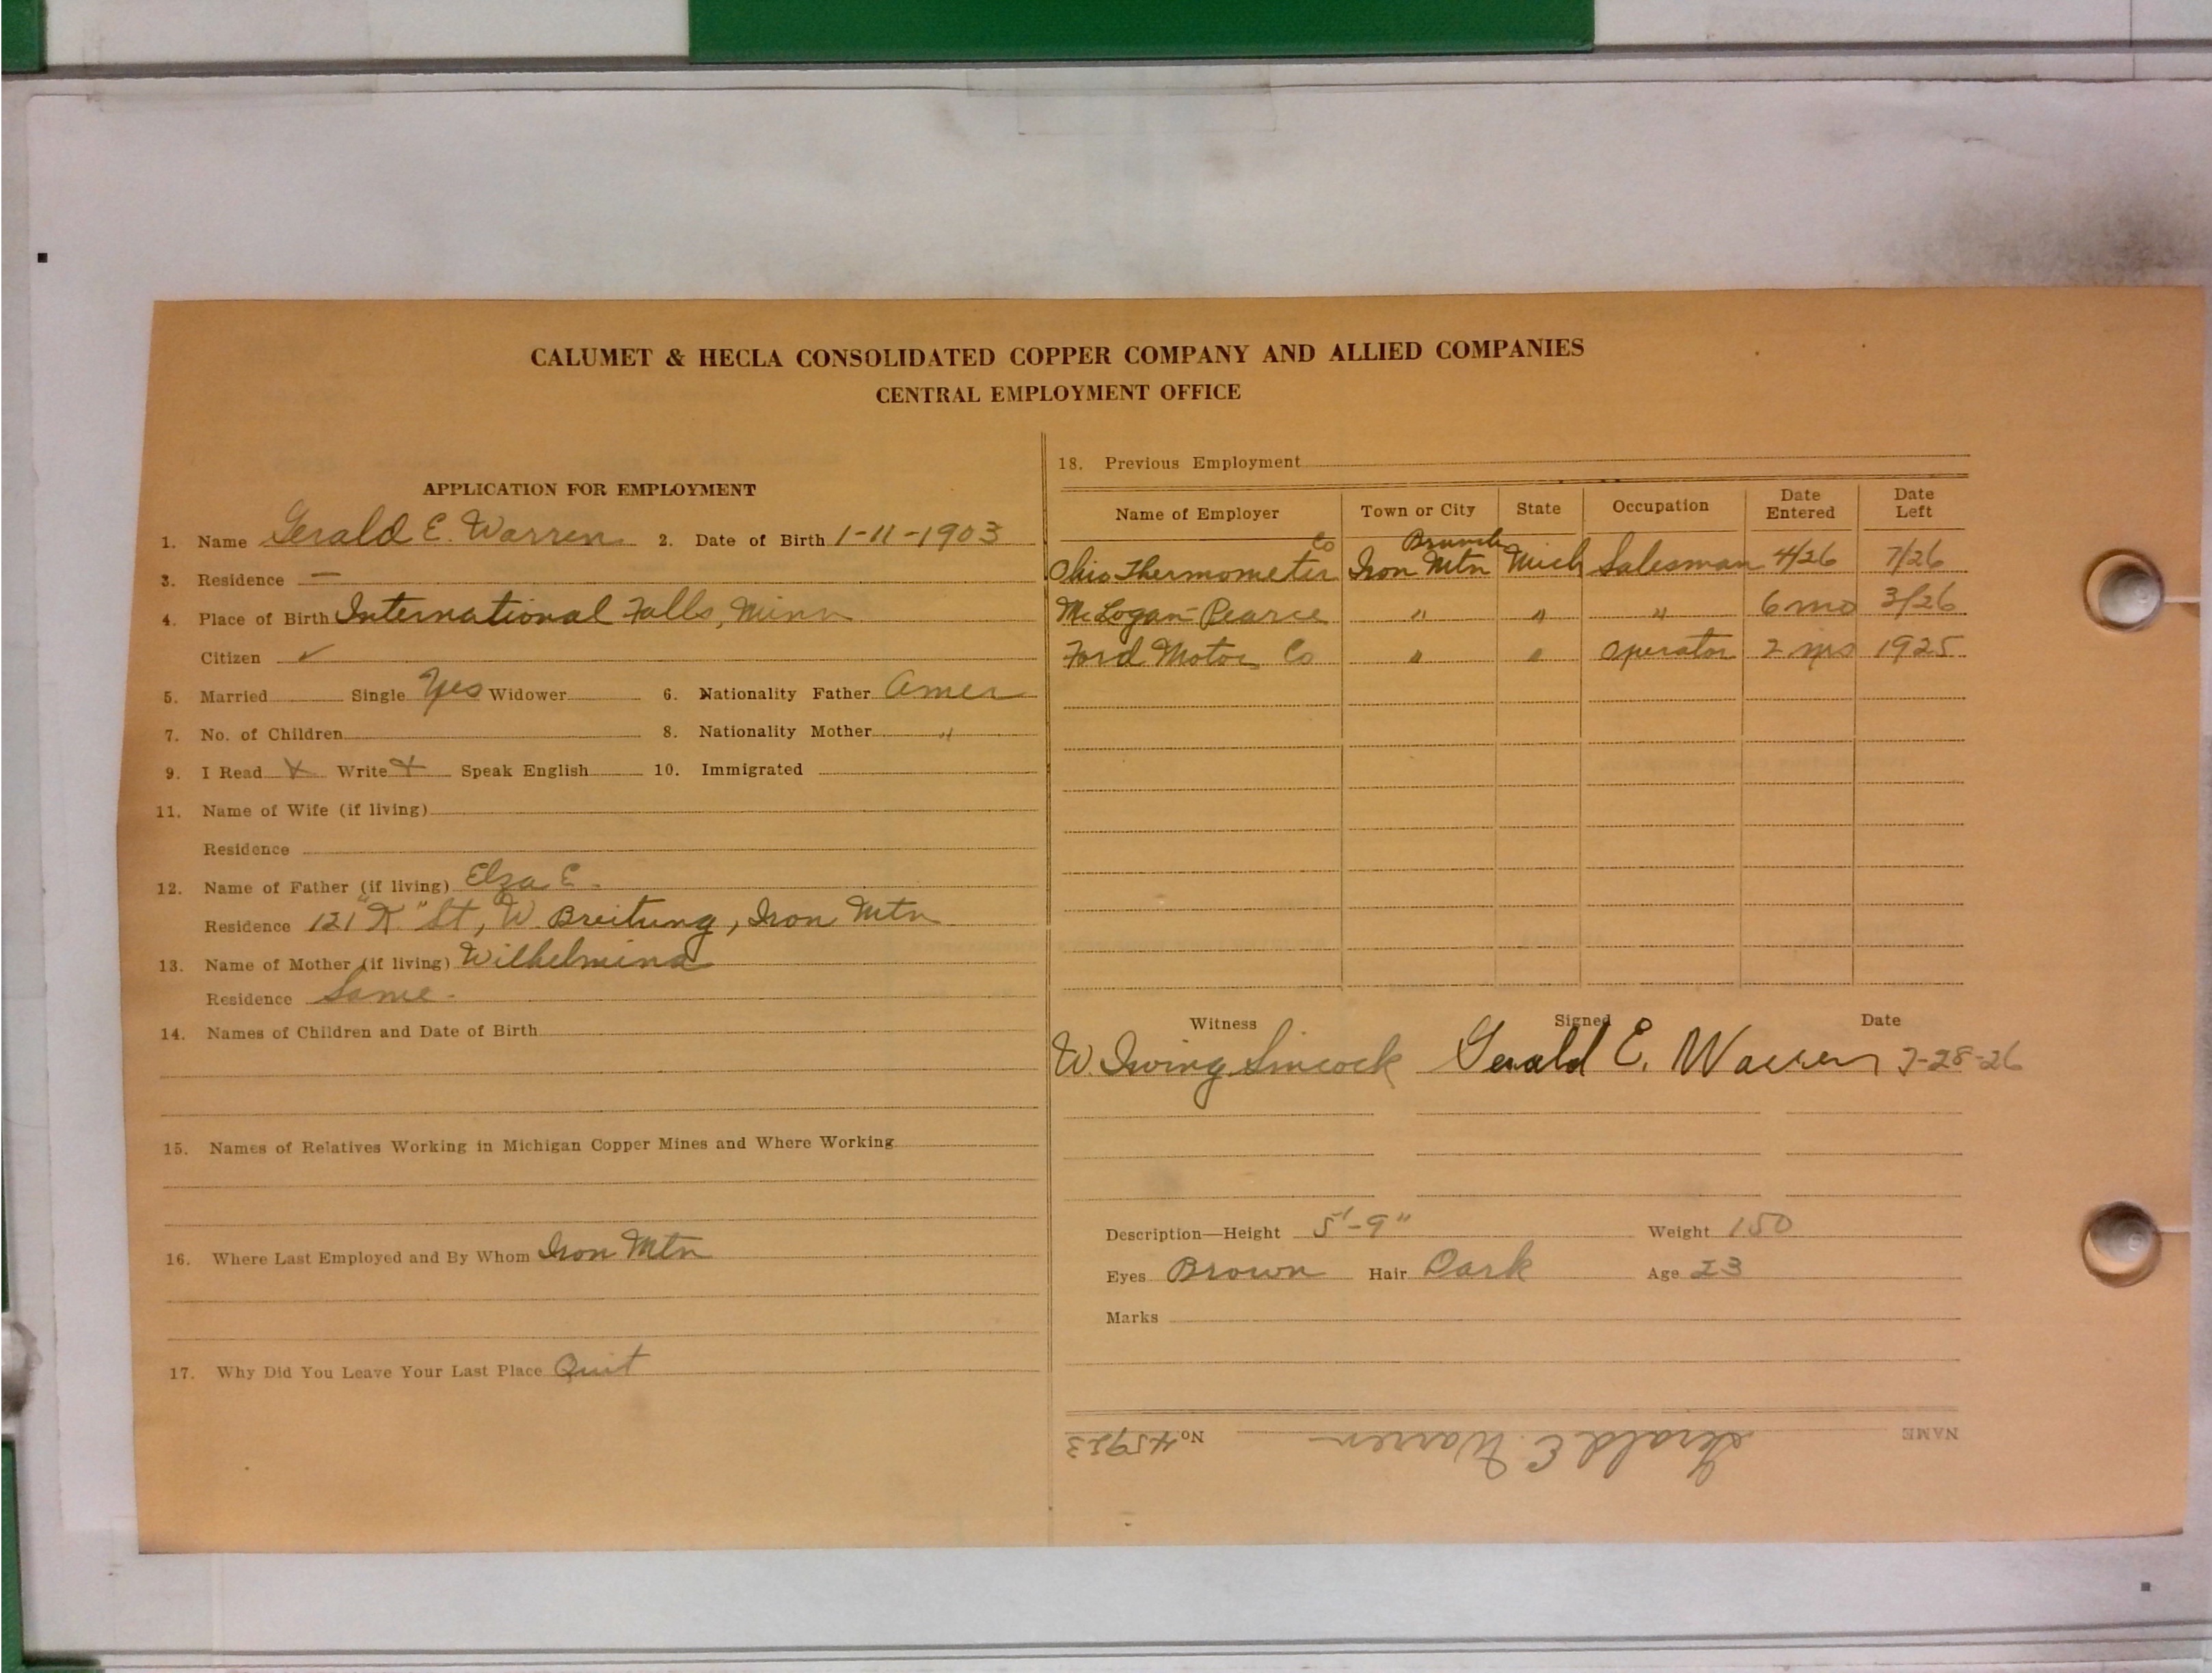 CALUMET & HECLA CONSOLIDATED COPPER COMPANY AND ALLIED COMPANIES
CENTRAL EMPLOYMENT OFFICE
APPLICATION FOR EMPLOYMENT
1. Name Gerald E. Warren 2. Date of Birth 1-11-1903
3. Residence —
4. Place of Birth International Falls, Minn
Citizen ✓
5. Married Single Yes Widower 6. Nationality Father Amer
7. No. of Children 8. Nationality Mother "
9. I Read X Write X Speak English 10. Immigrated
11. Name of Wife (if living)
Residence
12. Name of Father (if living) Elza E.
Residence 121 "K" St, W. Breitung, Iron Mtn
13. Name of Mother (if living) Wilhelmina
Residence Same.
14. Names of Children and Date of Birth
15. Names of Relatives Working in Michigan Copper Mines and Where Working
16. Where Last Employed and By Whom Iron Mtn
17. Why Did You Leave Your Last Place Quit
18. Previous Employment
Name of Employer Town or City State Occupation Date Entered Date Left
Co Branch
Ohio Thermometer Iron Mtn Mich Salesman 4/26 7/26
McLogan-Pearce " " " 6 mo 3/26
Ford Motor Co " " Operator 2 yrs 1925
Witness Signed Date
W. Irving Sincock Gerald E. Warren 7-28-26
Description—Height 5'-9" Weight 150
Eyes Brown Hair Dark Age 23
Marks
NAME Gerald E. Warren No 45923